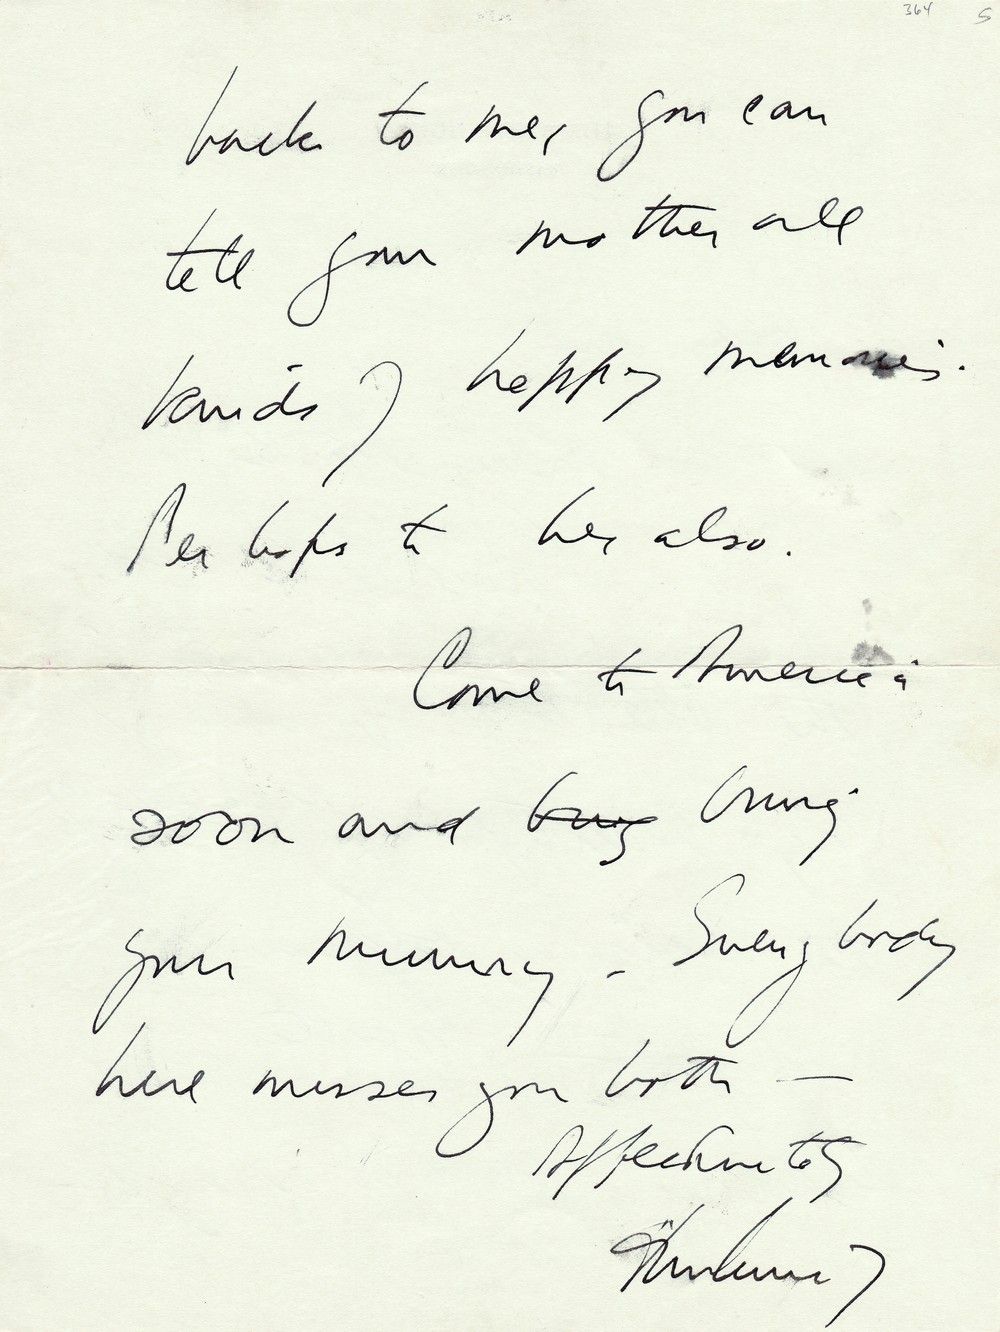 364 5
back to me, you can
tell your mother all
kinds of happy memories.
Perhaps to her also.
Come to America
soon and bring bring
your mummy - Everybody
here misses you both —
Affectionately